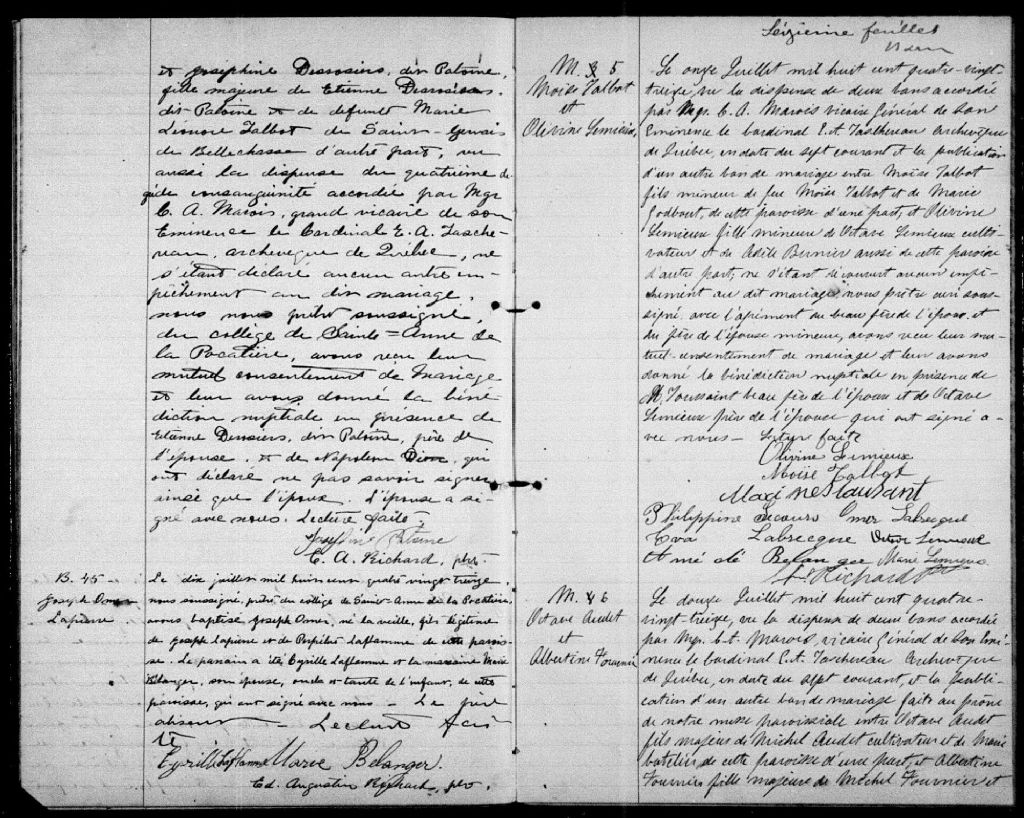 et Joséphine Desrosiers, dix Patoine,
fille majeure de Etienne Desrosiers,
dit Patoine et de defunte Marie
Léonore Talbot de Saint-Gervais
de Bellechasse d'autre part, vu
aussi la dispense du quatrième de
gré de consanguinité accordée par Mgr
C. A. Marois, grand vicaire de son
Eminence le Cardinal E. A. Tasche-
reau, archevêque de Québec, ne
s'étant déclaré aucun autre em-
pêchement au dit mariage,
nous nous prêtre soussigné,
du collège de Sainte=Anne de
la Pocatière, avons reçu leur
mutuel consentement de Mariage
et leur avons donné la béné-
diction nuptiale en présence de
Etienne Desrosiers, dix Patoine, père de
l'épouse, et de Napoléon Dion, qui
ont déclaré ne pas savoir signer
ainsi que l'époux. L'épouse a si-
gné avec nous. Lecture faite
Josephine Patoine
C. A. Richard, ptre
B. 45
Joseph Omer
Lapierre
Le dix juillet mil huit cent quatre vingt treize,
nous soussigné, prêtre du collège de Sainte-Anne de la Pocatière,
avons baptisé Joseph Omer, né la veille, fils légitime
de Joseph Lapierre et de Laflamme de cette parois-
se. Le parrain a été Cyrille Laflamme et la marraine Marie
Bélanger, son épouse, oncle et tante de l'enfant, de cette
paroisse, qui ont signé avec nous - Le père
absent - Lecture fai
te
Cyrille Laflamme Marie Belanger.
Ed. Augustin Richard, ptre.
Séizieme feuillet
M. 5
Moïse Talbot
et
Olivine Lemieux
Le onze Juillet mil huit cent quatre-vingt-
treize, vu la dispense de deux bans accordée
par Mgr. C. A. Marois vicaire Général de Son
Eminence le Cardinal E.A. Taschereau Archevêque
de Québec, en date du sept courant et la publication
d'un autre ban de mariage entre Moïse Talbot
fils mineur de feu Moïse Talbot et de Marie
Godbout, de cette paroisse d'une part; et Olivine
Lemieux fille mineure de Octave Lemieux culti-
vateur et de Adèle Bernier aussi de cette paroisse
d'autre part; ne s'étant découvert aucun empê-
chement au dit mariage, nous prêtre curé sous-
signé, avec l'agrément du beau père de l'époux et
du père de l'épouse mineure, avons reçu leur mu-
tuel consentement de mariage et leur avons
donné la bénédiction nuptiale en présence de
M. Toussaint beau père de l'époux et de Octave
Lemieux père de l'épouse qui ont signé a-
vec nous - Lecture faite
Olivine Lemieux
Moïse Talbot
Philippine Omer Labrecque
Eva Labrecque Octave Lemieux
Belanger Marie Lemieux
Richard Ptre
M. 6
Octave Audet
et
Albertine Fournier
Le douze Juillet mil huit cent quatre-
vingt-treize, vu la dispense de deux bans accordée
par Mgr. C.A. Marois, vicaire Général de Son Emi-
nence le Cardinal E.A. Taschereau Archevêque
de Québec, en date du sept courant, et la publi-
cation d'un autre ban de mariage faite au prône
de notre messe paroissiale entre Octave Audet
fils majeur de Michel Audet cultivateur et de Marie
de cette paroisse d'une part; et Albertine
Fournier fille majeure de Michel Fournier et